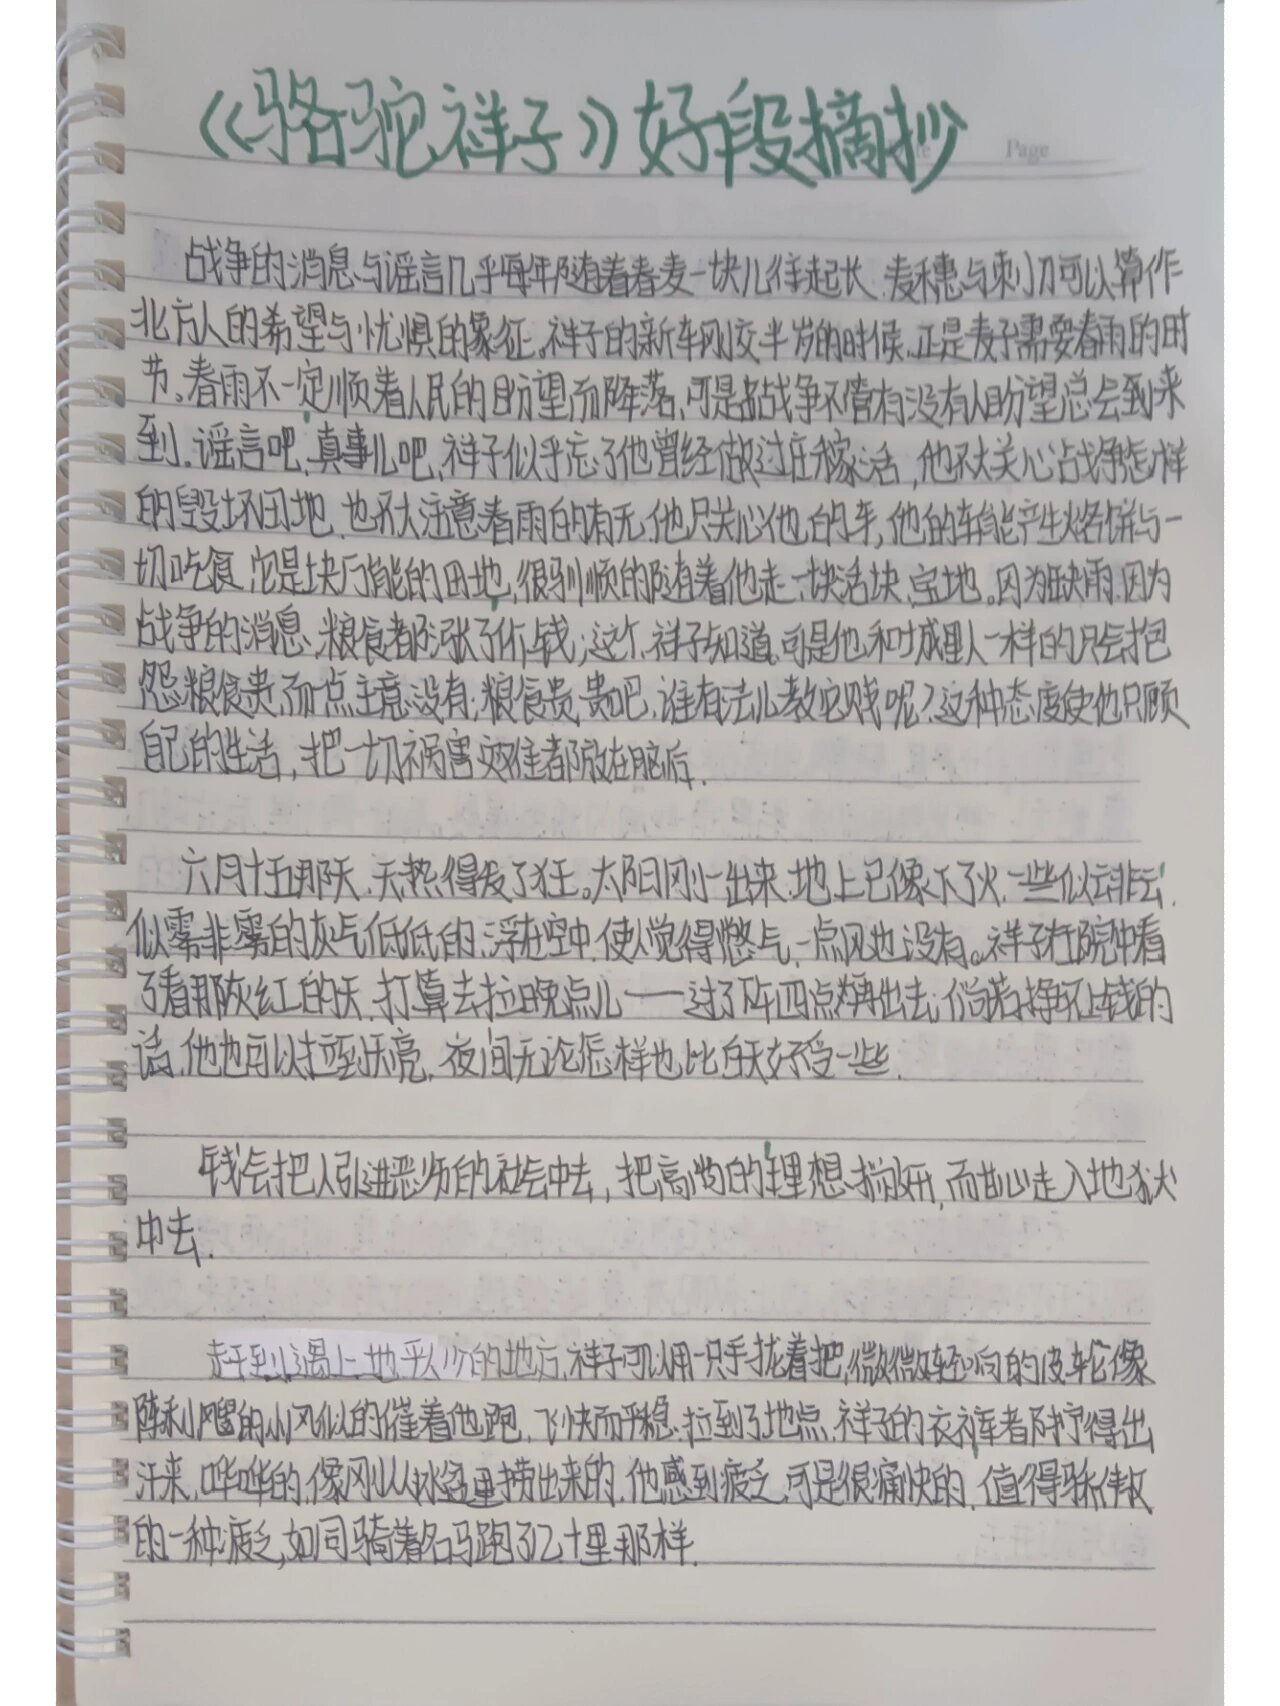 《骆驼祥子》好段摘抄
Page
战争的消息与谣言几乎每年随着春麦一块儿往起长,麦穗与刺刀可以算作
北方人的希望与忧惧的象征。祥子的新车刚交半岁的时候,正是麦子需要春雨的时
节。春雨不一定顺着人民的盼望而降落,可是战争不管有没有人盼望总会到来
到.谣言吧,真事儿吧,祥子似乎忘了他曾经做过庄稼活,他不大关心战争怎样
的毁坏田地,也不大注意春雨的有无.他只关心他的车,他的车能产生烙饼与一
切吃食,它是块万能的田地,很驯顺的随着他走,一块活块、宝地。因为缺雨,因为
战争的消息,粮食都涨了价钱;这个,祥子知道.可是他和城里人一样的只会抱
怨粮食贵,而一点主意没有;粮食贵,贵吧,谁有法儿教它贱呢?这种态度使他只顾
自己的生活,把一切祸害灾难都放在脑后.
六月十五那天,天热得发了狂。太阳刚一出来,地上已像下了火,一些似云非云,
似雾非雾的灰气低低的浮在空中,使人觉得憋气,一点风也没有。祥子在院中看
了看那灰红的天,打算去拉晚点儿——过了下午四点再出去;倘若挣不上钱的
话,他也可以拉到天亮,夜间无论怎样也比白天好受一些.
钱会把人引进恶劣的社会中去,把高尚的理想撇开,而甘心走入地狱
中去.
赶到遇上地平人少的地方,祥子可以用一只手拢着把,微微轻响的皮轮像
阵利飕的小风似的催着他跑,飞快而平稳.拉到了地点,祥子的衣裤都拧得出
汗来,哗哗的,像刚从水盆里捞出来的.他感到疲乏,可是很痛快的,值得骄傲
的一种疲乏,如同骑着名马跑了几十里那样.